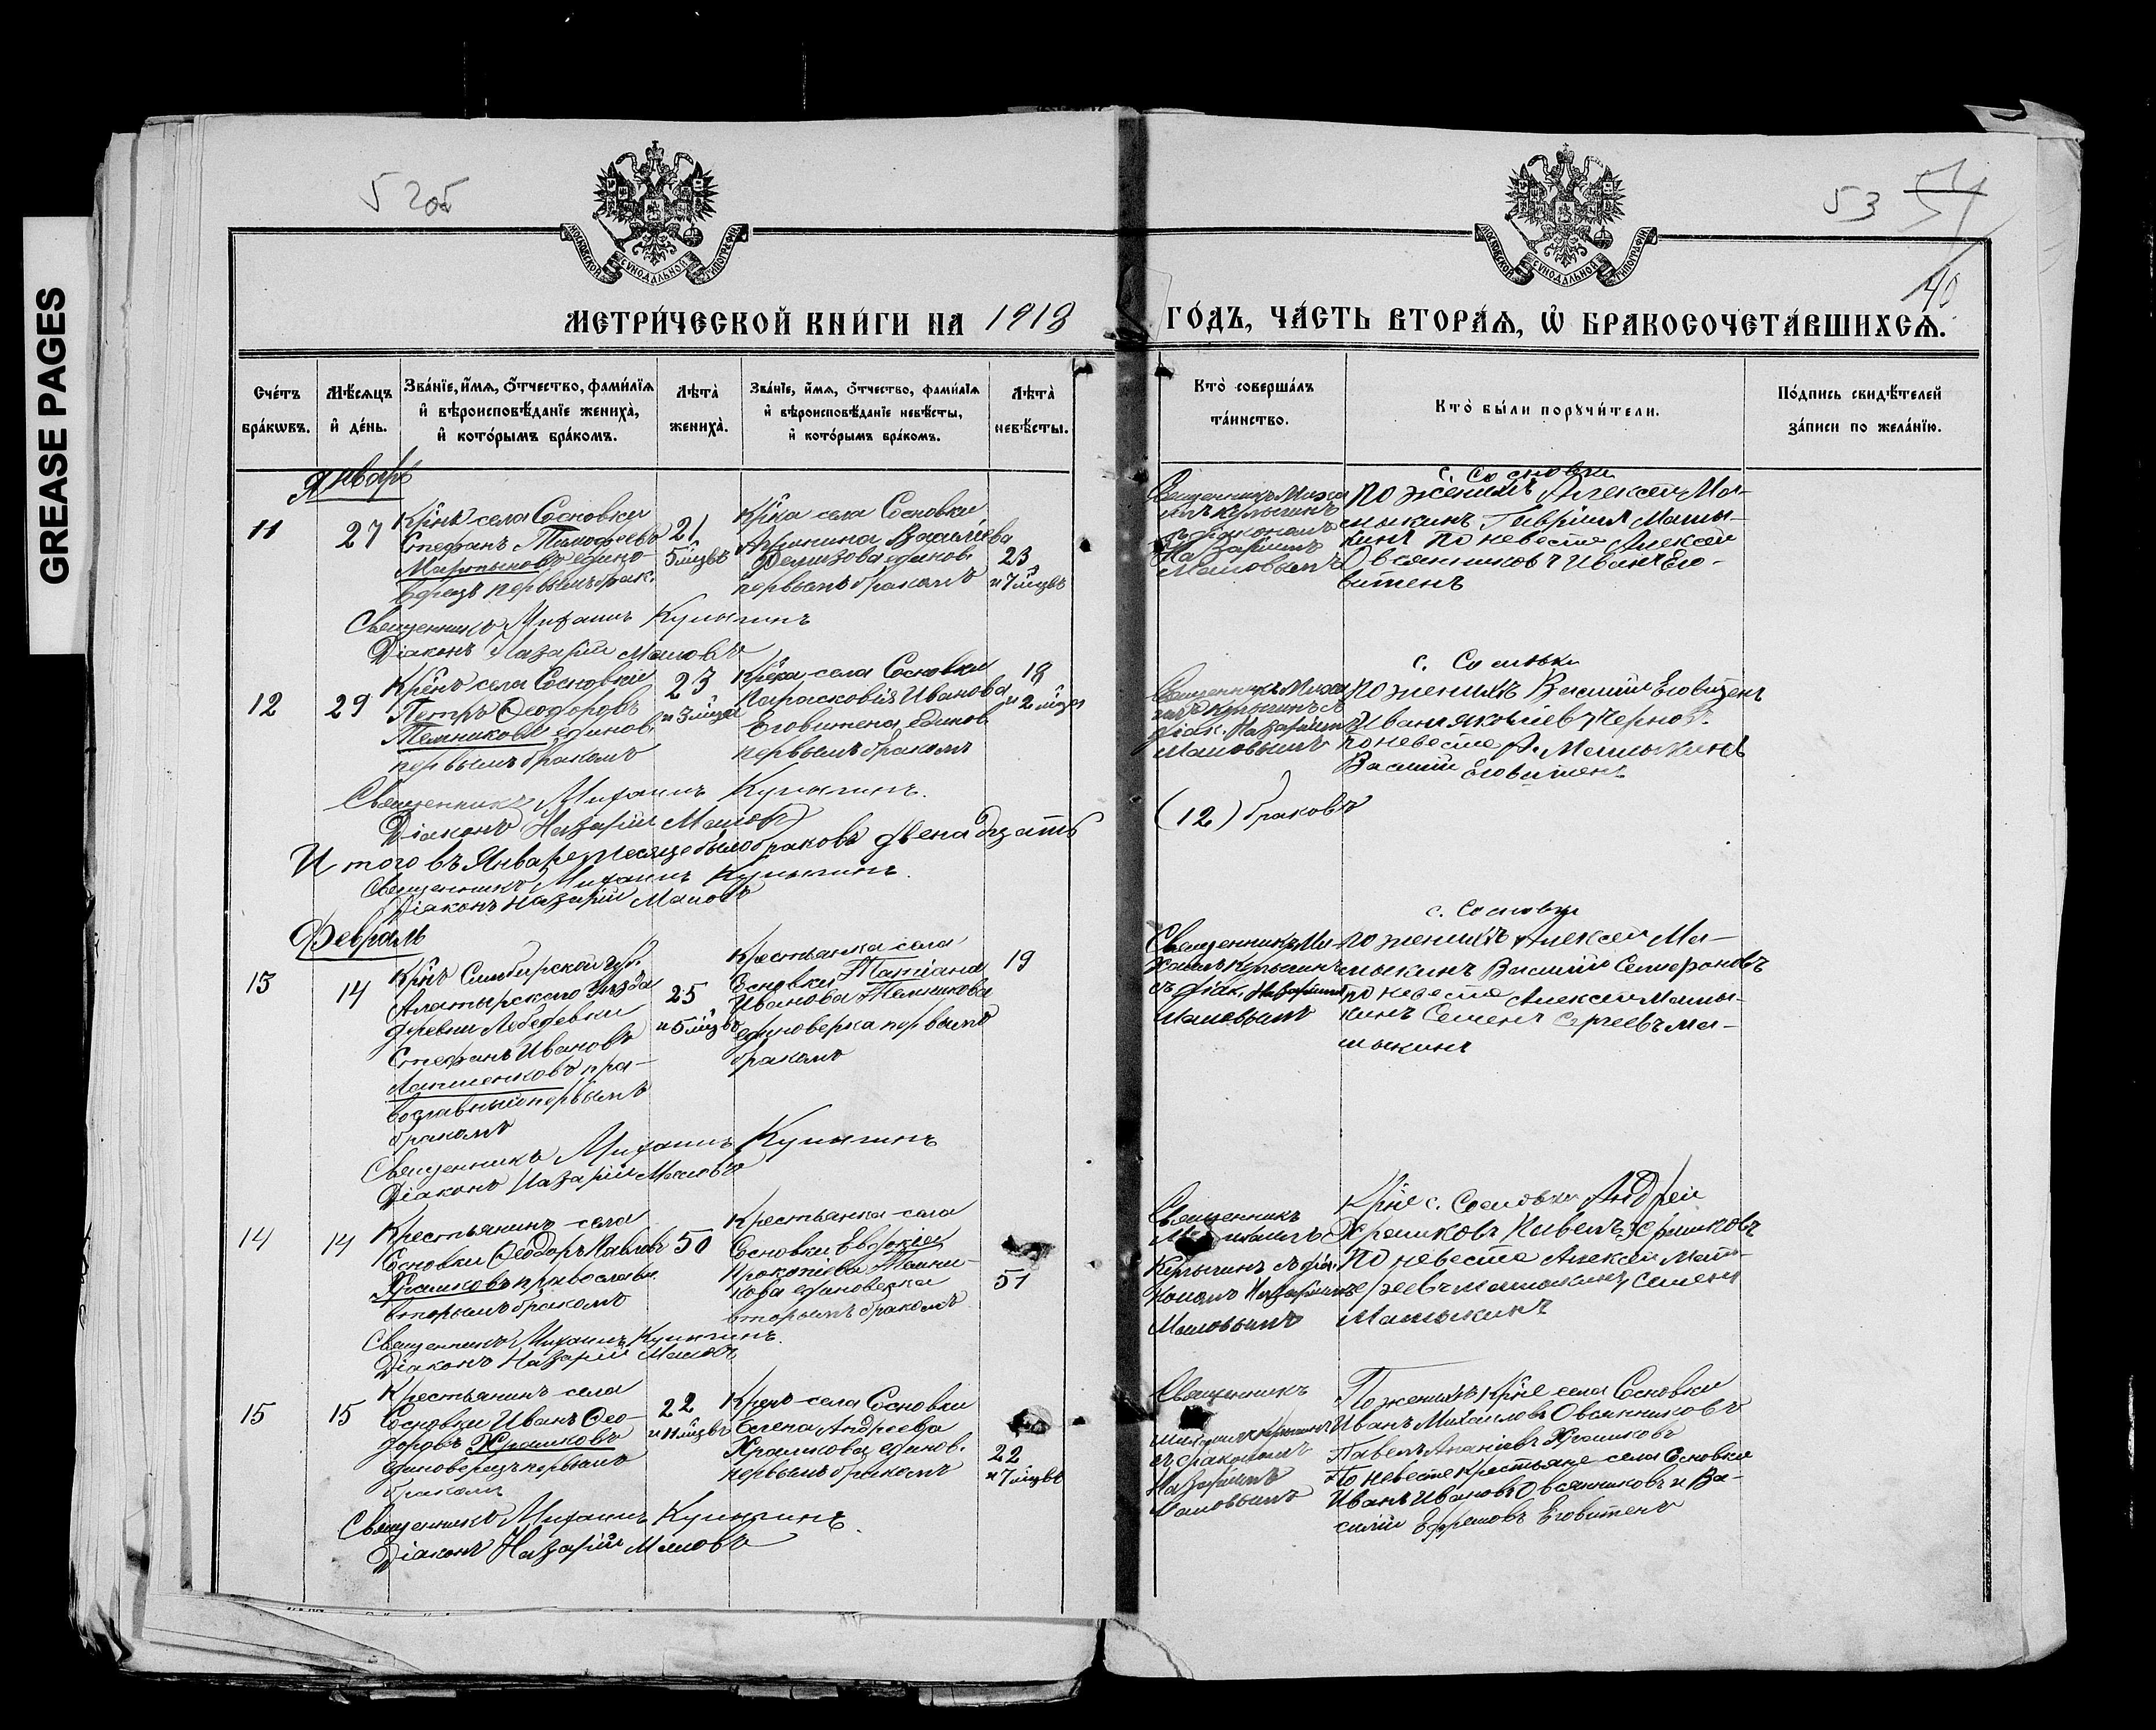 GREASE PAGES
5 205
53
40
МОСКОВСКОЙ СѴНОДАЛЬНОЙ ТИПОГРАФІИ
МОСКОВСКОЙ СѴНОДАЛЬНОЙ ТИПОГРАФІИ
МЕТРИ́ЧЕСКОЙ КНИ́ГИ НА 1918 ГО́ДЪ, ЧА́СТЬ ВТОРА́Ѧ, Ѽ БРАКОСОЧЕТА́ВШИХСѦ.
Сче́тъ бра́кѡвъ.
Мѣ́сѧцъ и҆ де́нь.
Зва́нїе, и҆́мѧ, ѻ҆́тчество, фами́лїѧ и҆ вѣроисповѣ́данїе жениха̀, и҆ кото́рымъ бра́комъ.
Лѣ́та̀ жениха̀.
Зва́нїе, и҆́мѧ, ѻ҆́тчество, фами́лїѧ и҆ вѣроисповѣ́данїе невѣ́сты, и҆ кото́рымъ бра́комъ.
Лѣ́та̀ невѣ́сты.
Кто̀ соверша́лъ та́инство.
Кто̀ бы́ли порꙋчи́тели.
По́дпись свидѣ́телей за́писи по жела́нїю.
Январь
11
27
Крнъ села Сосновки
Стефанъ Тимофеевъ
Мартыновъ едино-
верецъ первым брак.
21
5 мцвъ
Крка села Сосновки
Агрипина Василіева
единов.
первымъ бракомъ
23
и 7 мцвъ
Священникъ Миха
илъ Кулыгинъ
съ діакономъ
Назаріемъ
Маловымъ
с. Сосновки
по женихѣ Алексей Ма-
мыкинъ Гавріил Мамы-
кинъ по невесте Алексей
Овсянниковъ Иванъ Его-
витенъ
Священникъ Михаилъ Кулыгинъ
Діаконъ Назарій Маловъ
12
29
Крнъ села Сосновки
Петръ Феодоровъ
Темниковъ единов.
первымъ бракомъ
23
и 3 мцва
Крка села Сосновки
Парасковія Иванова
Еговитена единов
первымъ бракомъ
18
и 2 мцва
Священникъ Миха
илъ Кулыгинъ с
діак. Назаріемъ
Маловымъ
с. Сосновки
по женихѣ Василій Еговитен
Иван Яковлевъ Чернов.
по невесте А. Мамыкинъ
Василій Еговитенъ
Священникъ Михаилъ Кулыгинъ.
Діаконъ Назарій Маловъ
Итого въ Январе месяце было браковъ двенадцать
(12) браковъ
Священникъ Михаилъ Кулыгинъ.
Діаконъ Назарій Маловъ
Февраль
13
14
Крнъ Симбирской губ.
Алатырскаго Уѣзда
деревни Лебедевки
Стефанъ Ивановъ
пра-
вославный первымъ
бракомъ
25
и 5 мцвъ
Крестьянка села
Сосновки Татіана
Иванова Темникова
единоверка первымъ
бракомъ
19
Священникъ Ми-
хаилъ Кулыгинъ
съ діак. Назаріемъ
Маловымъ
с. Сосновки
по женихѣ Алексей Ма-
мыкинъ Василій Селифановъ
по невесте Алексей Мамы-
кинъ Семенъ Сергеевъ Ма-
мыкинъ
Священникъ Михаилъ Кулыгинъ
Діаконъ Назарій Маловъ
14
14
Крестьянинъ села
Сосновки Феодоръ Павловъ
Храмковъ православн.
вторымъ бракомъ
50
Крестьянка села
Сосновки Евдокія
Прокопіева Темни-
кова единоверка
вторымъ бракомъ
51
Священникъ
Михаилъ
Кулыгинъ с діа
кономъ Назаріемъ
Маловымъ
Крне с. Сосновки Андрей
Храмковъ Павелъ Храмковъ
по невесте Алексей
Мамыкинъ Семенъ
Мамыкинъ
Священникъ Михаилъ Кулыгинъ.
Діаконъ Назарій Маловъ
15
15
Крестьянинъ села
Сосновки Иванъ Фео-
доровъ Храмковъ
единоверецъ первымъ
бракомъ
22
и 11 мцвъ
села Сосновки
Елена Андреева
Храмкова единов.
первымъ бракомъ
22
и 7 мцвъ
Священникъ
Михаилъ Кулыгинъ
съ діакономъ
Назаріемъ
Маловымъ
По женихѣ Крне села Сосновки
Иванъ Михаиловъ Овсянниковъ
Павелъ Ананіевъ Храмковъ
По невесте крестьяне села Сосновки
Иванъ Ивановъ Овсянниковъ и Ва-
силій Ефремовъ Еговитенъ
Священникъ Михаилъ Кулыгинъ.
Діаконъ Назарій Маловъ